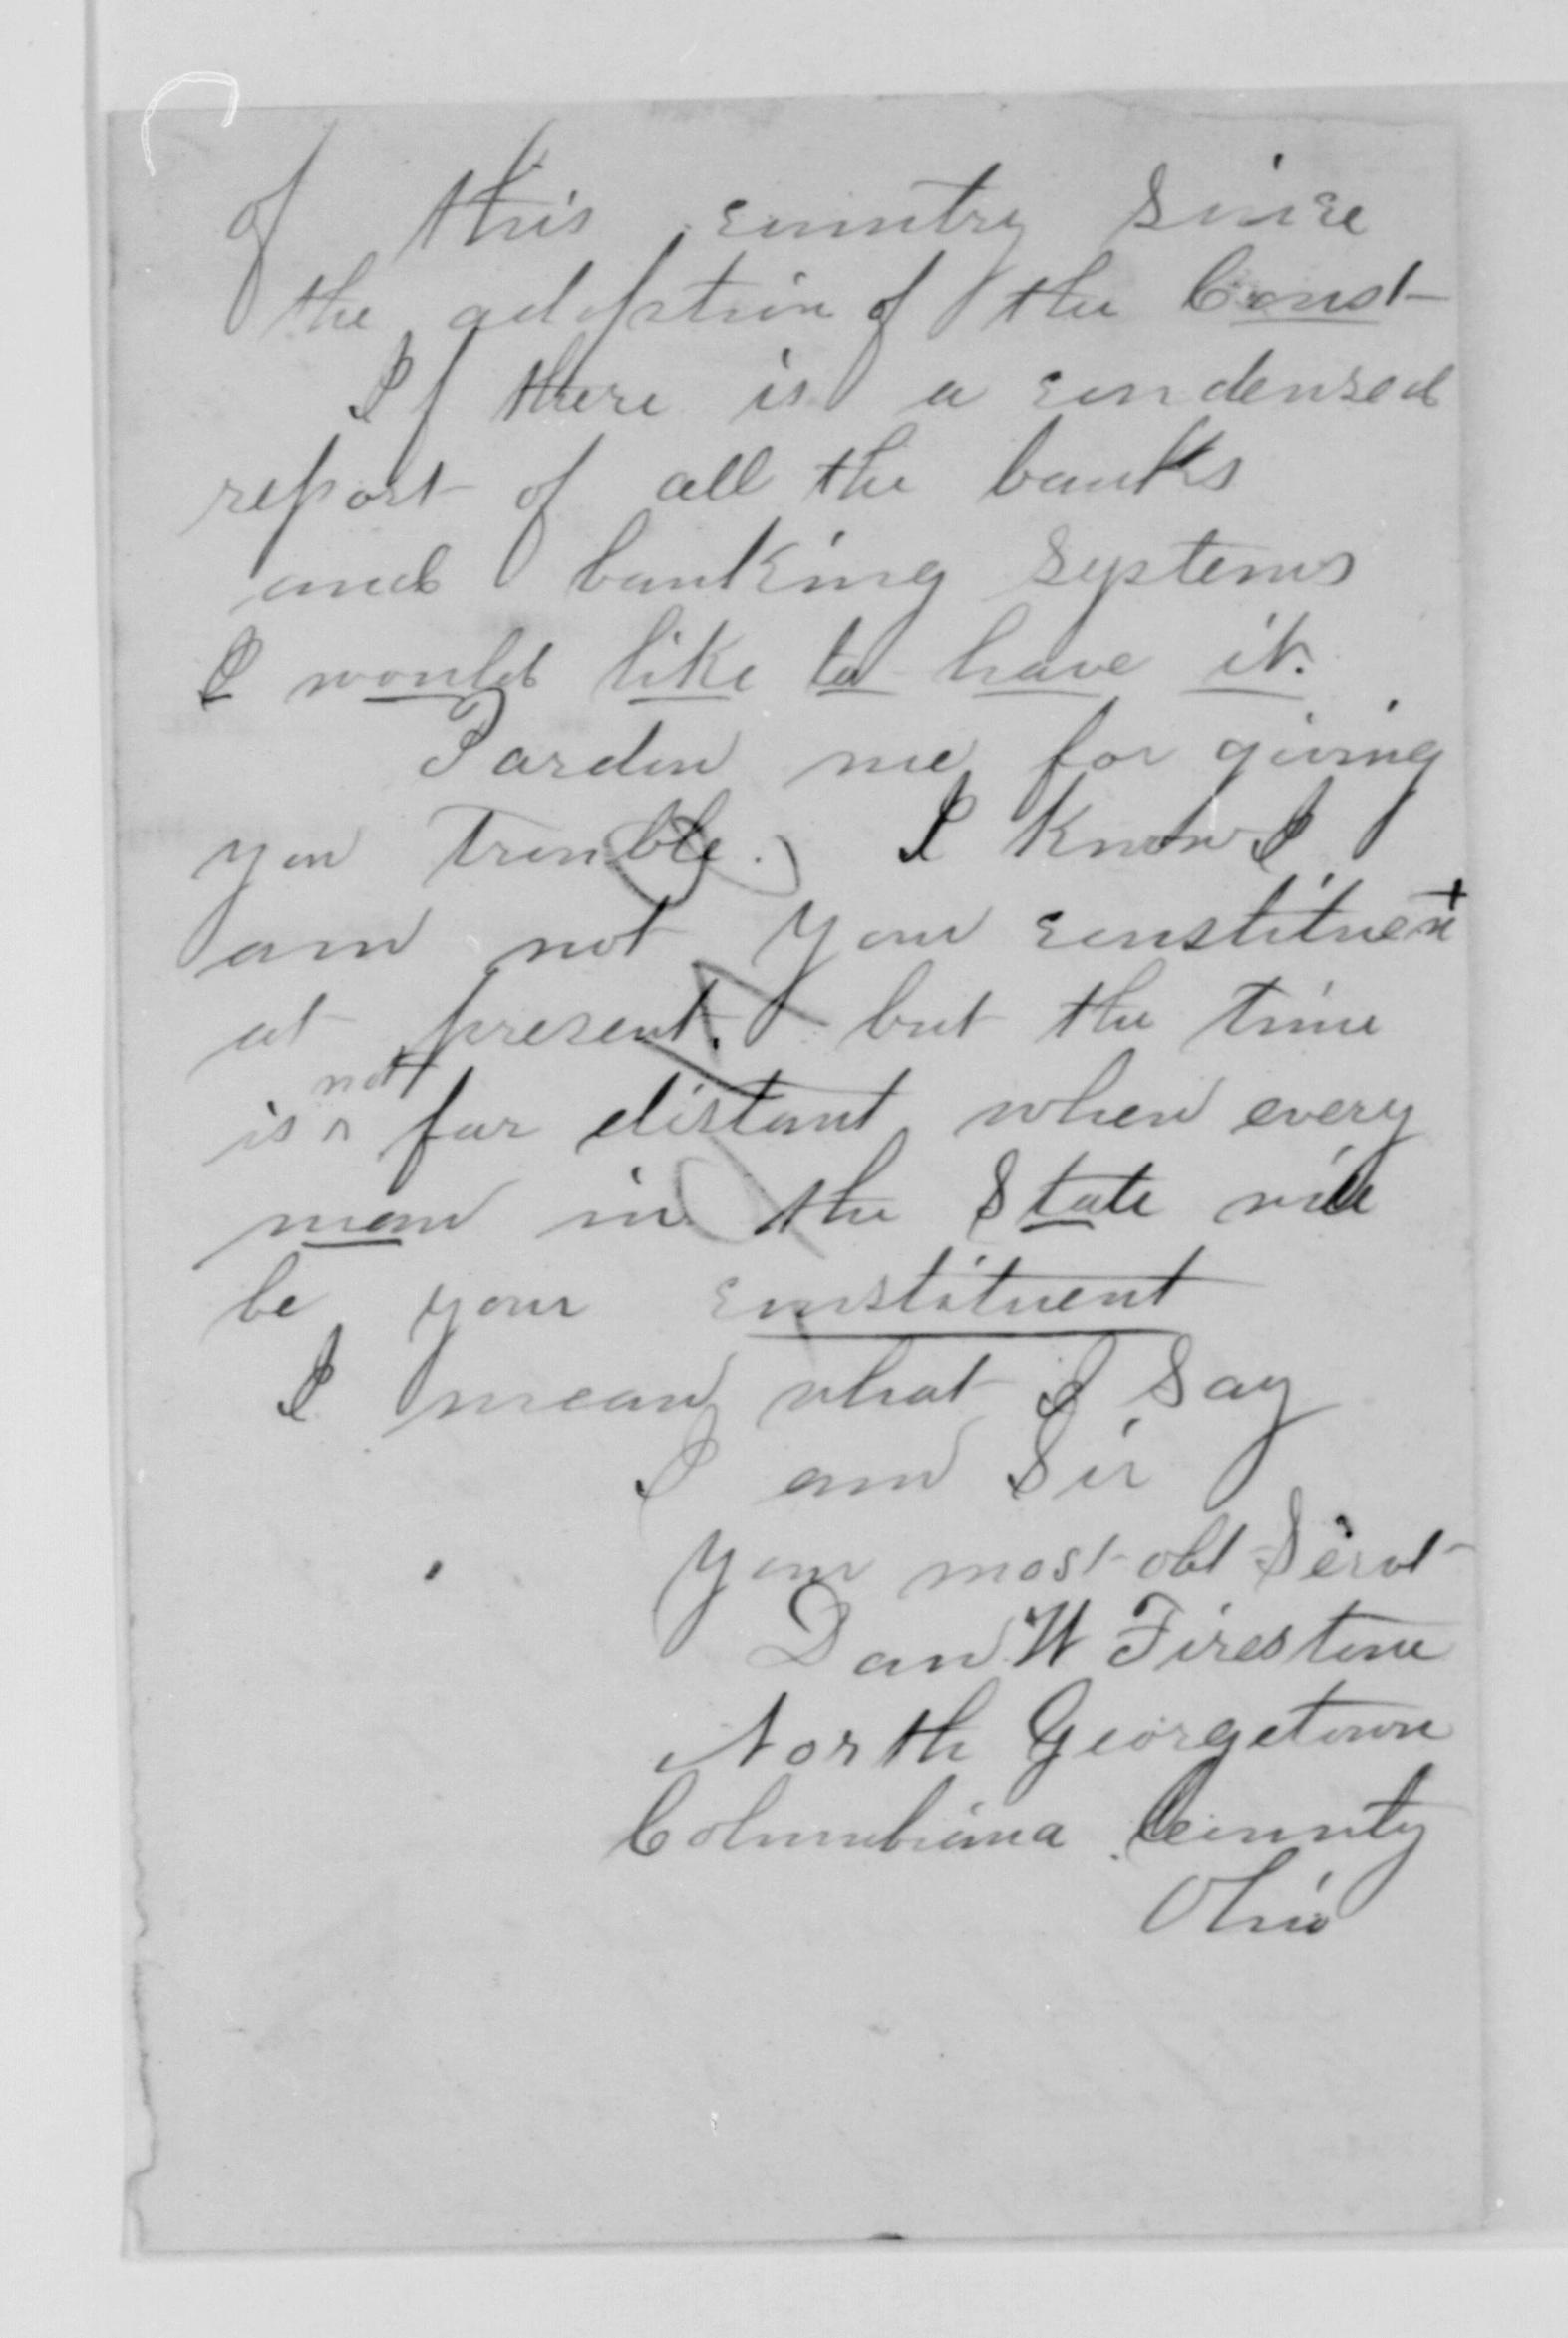 of this country since
the adoption of the Const
If there is a condensed
report of all the banks
and banking systems
I would like to have it.
Pardon me for giving
you trouble. I know I
am not your constituent
at present. but the time
is not far distant when every
man in the State will
be your constituent
I mean what I say
I am Sir
Your most obt Servt
Dan W Firestone
North Georgetown
Columbiana County
Ohio